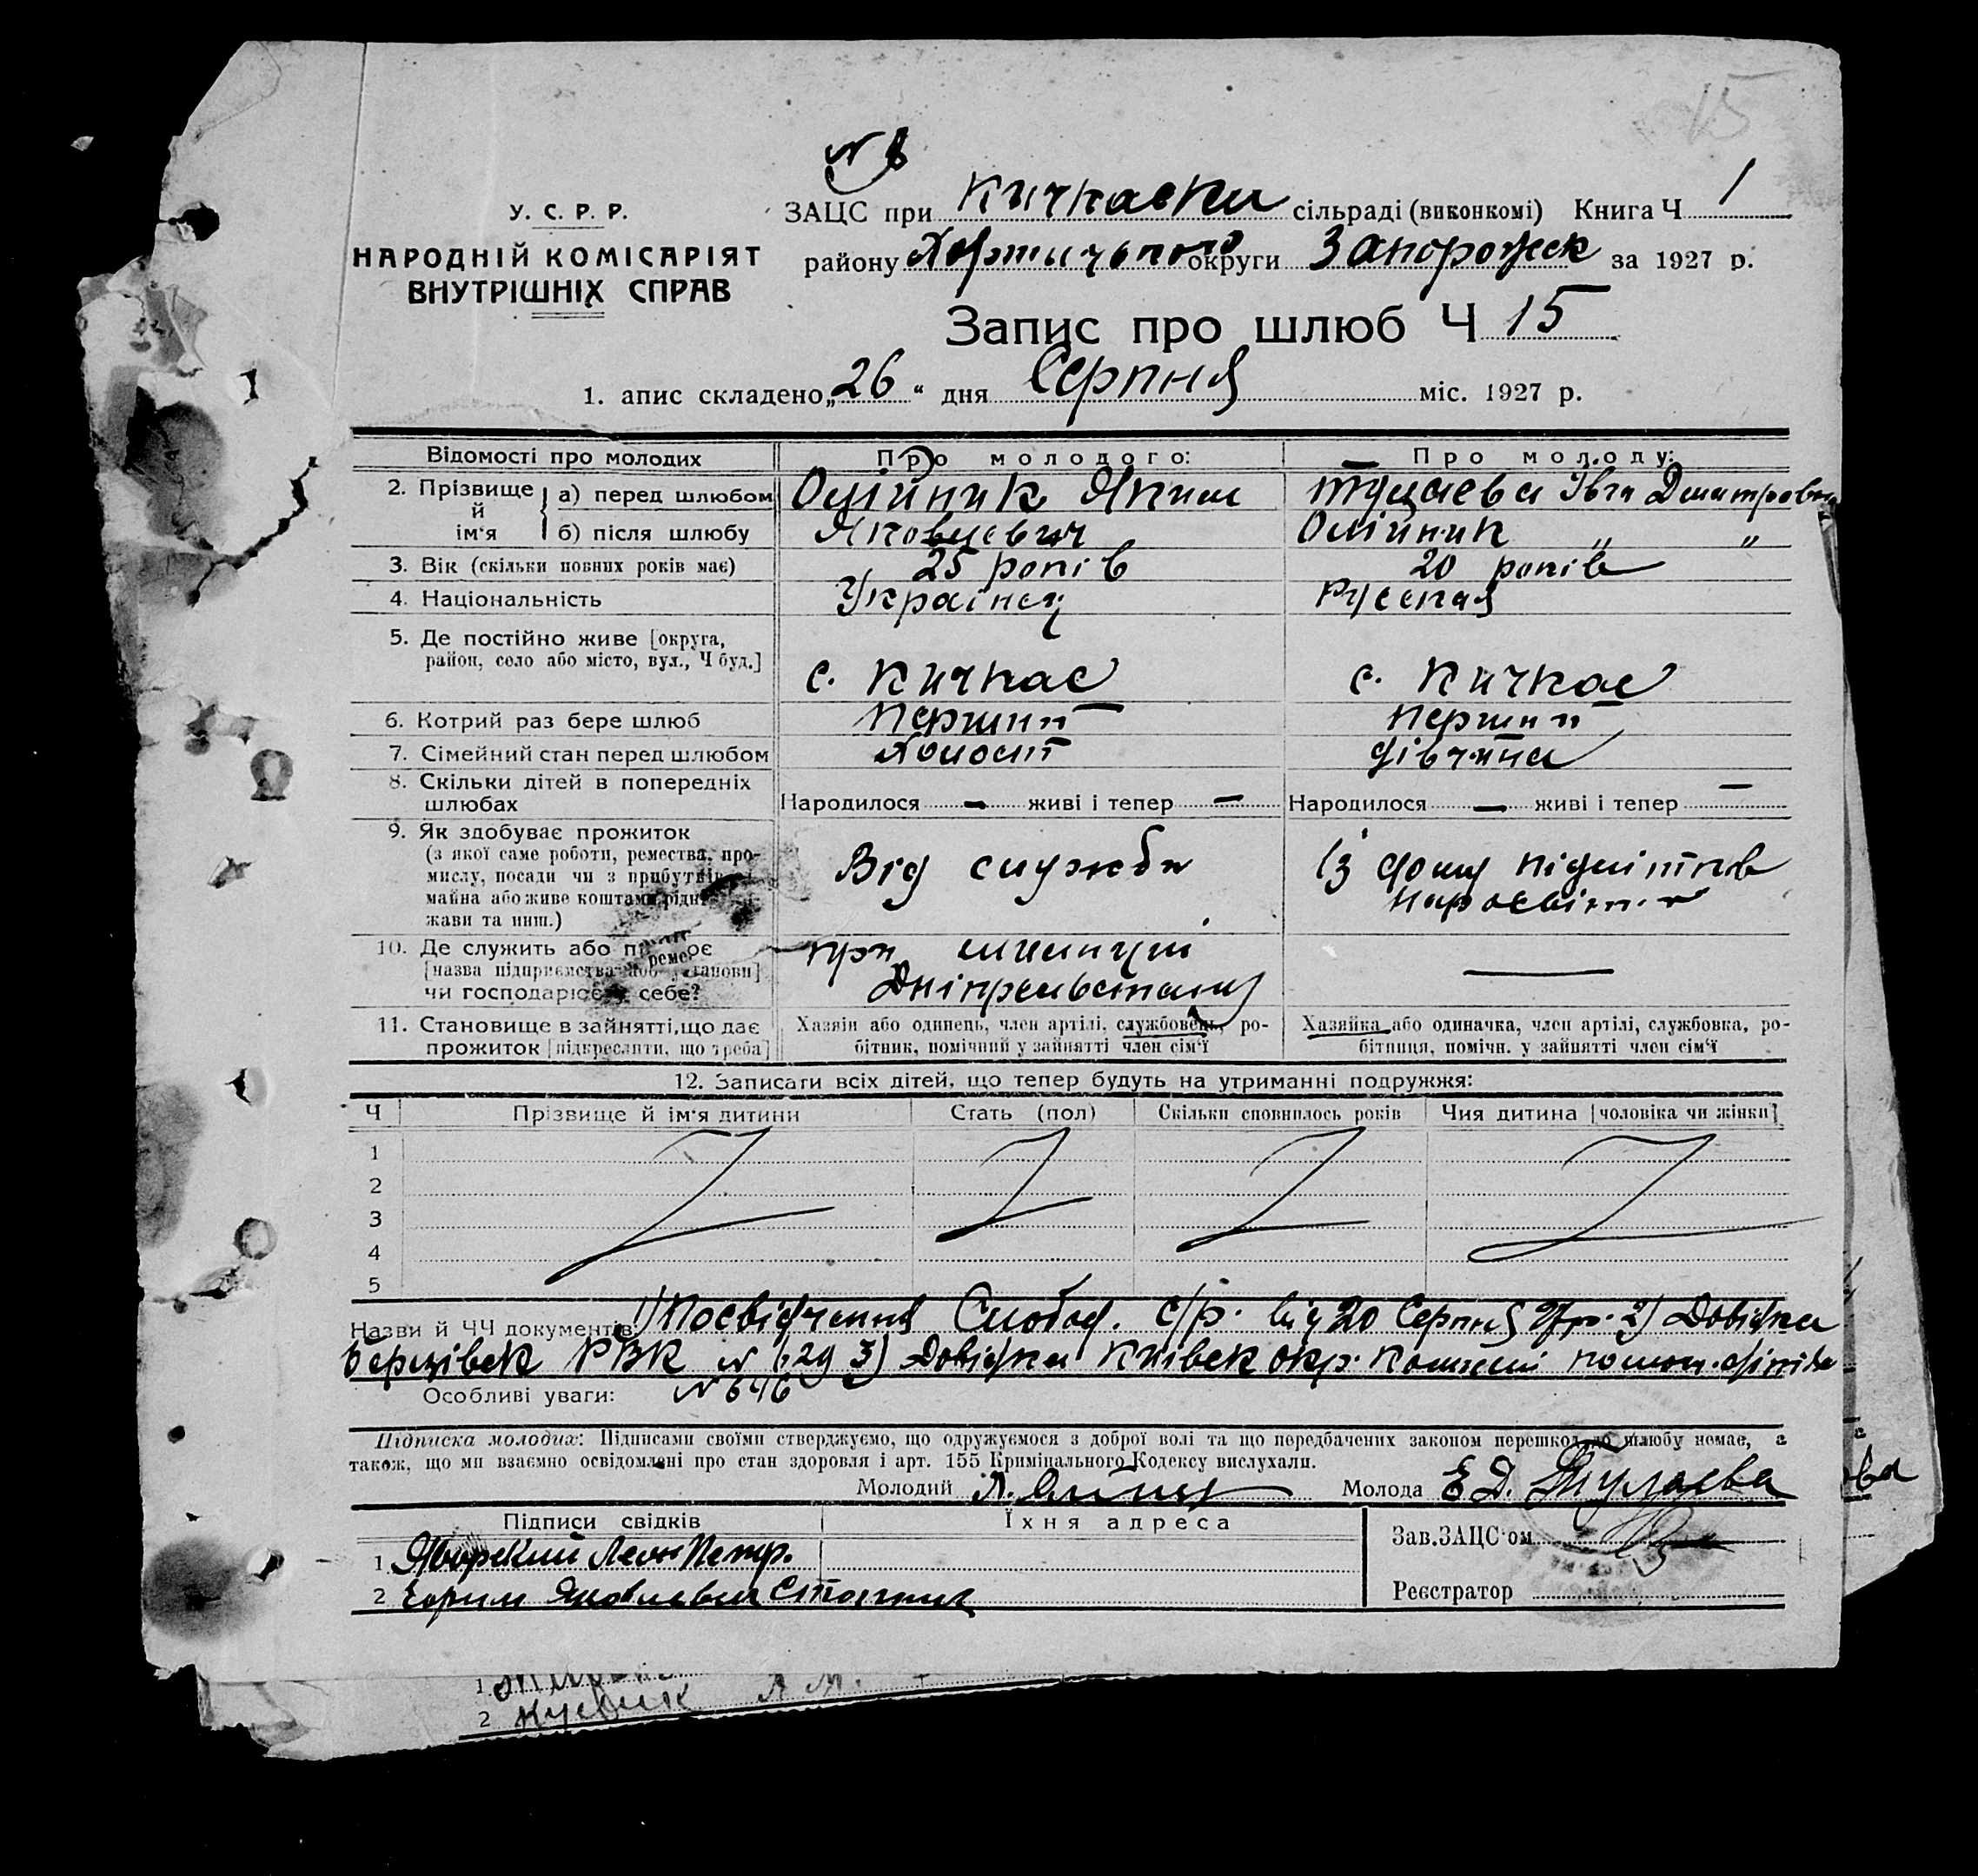 15
N 8
У. С. Р. Р.
НАРОДНІЙ КОМІСАРІЯТ
ВНУТРІШНІХ СПРАВ
ЗАЦС при Кичкаски сільраді (виконкомі) Книга Ч 1
району Хортицького округи Запорожск за 1927 р.
Запис про шлюб Ч 15
1. апис складено „26“ дня Серпня міс. 1927 р.
Відомості про молодих
Про молодого:
Про молоду:
2. Прізвище й ім'я
а) перед шлюбом
Олійник Яким
Тулаева Івга Дмитровна
б) після шлюбу
Яковлевич
Олійник „ „
3. Вік (скільки повних років має)
25 років
20 років
4. Національність
Українец
Русская
5. Де постійно живе [округа,
район, село або місто, вул., Ч буд.]
с. Кичкас
с. Кичкас
6. Котрий раз бере шлюб
Перший
Перший
7. Сімейний стан перед шлюбом
Холост
дівчина
8. Скільки дітей в попередніх
шлюбах
Народилося — живі і тепер —
Народилося — живі і тепер —
9. Як здобуває прожиток
(з якої саме роботи, ремества, про-
мислу, посади чи з прибутків
майна або живе коштами рідн
жави та инш.)
Від служби
Із дому
10. Де служить або п оє
[назва підприємства або установи]
чи господарює у себе?
при міліції
Дніпрельстану
—
11. Становище в зайнятті, що дає
прожиток [підкреслити, що треба]
Хазяїн або одинець, член артілі, службовець, ро-
бітник, помічний у зайнятті член сім'ї
Хазяйка або одиначка, член артілі, службовка, ро-
бітниця, помічн. у зайнятті член сім'ї
12. Записати всіх дітей, що тепер будуть на утриманні подружжя:
Ч Прізвище й ім'я дитини Стать (пол) Скільки сповнилось років Чия дитина [чоловіка чи жінки]
1
2
3
4
5
Назви й ЧЧ документів 1) Посвідчення Слобод. с/р. від 20 Серпня 27 р. 2) Довідка
Березівск РВК N 629 3) Довідка Київск окр.
N 646
Особливі уваги:
Підписка молодих: Підписами своїми стверджуємо, що одружуємося з доброї волі та що передбачених законом перешкод до шлюбу немає, а
також, що ми взаємно освідомлені про стан здоровля і арт. 155 Кримінального Кодексу вислухали.
Молодий Молода Е Д. Тулаева
Підписи свідків Їхня адреса
1 Яворский Леон Петр.
2 Яковлевич
Зав. ЗАЦС'ом
Реєстратор
1
2